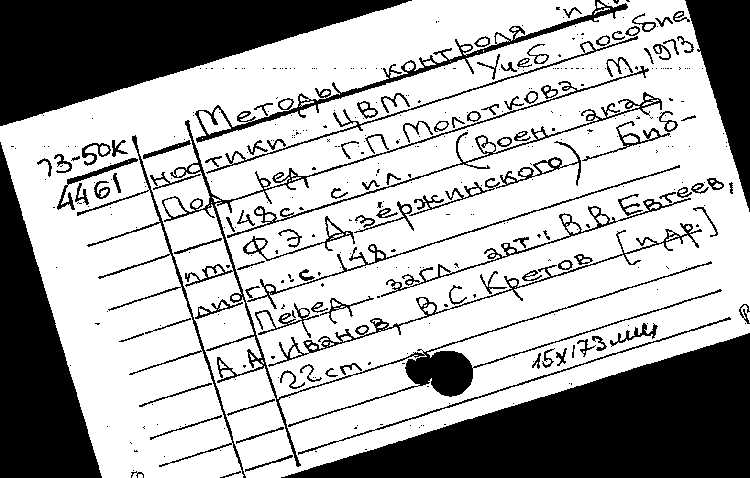 Методы контроля и ди
73-50к
ностики ЦВМ. Учеб. пособие
4461
Под ред. Г.П. Молоткова. М., 1973.
148с. с ил. (Воен. акад.
им. Ф.Э. Дзержинского). Биб-
лиогр.: с. 148.
Перед загл. авт.: В.В. Евтеев,
А.А. Иванов, В.С. Кретов [и др.]
22 cm.
15X173